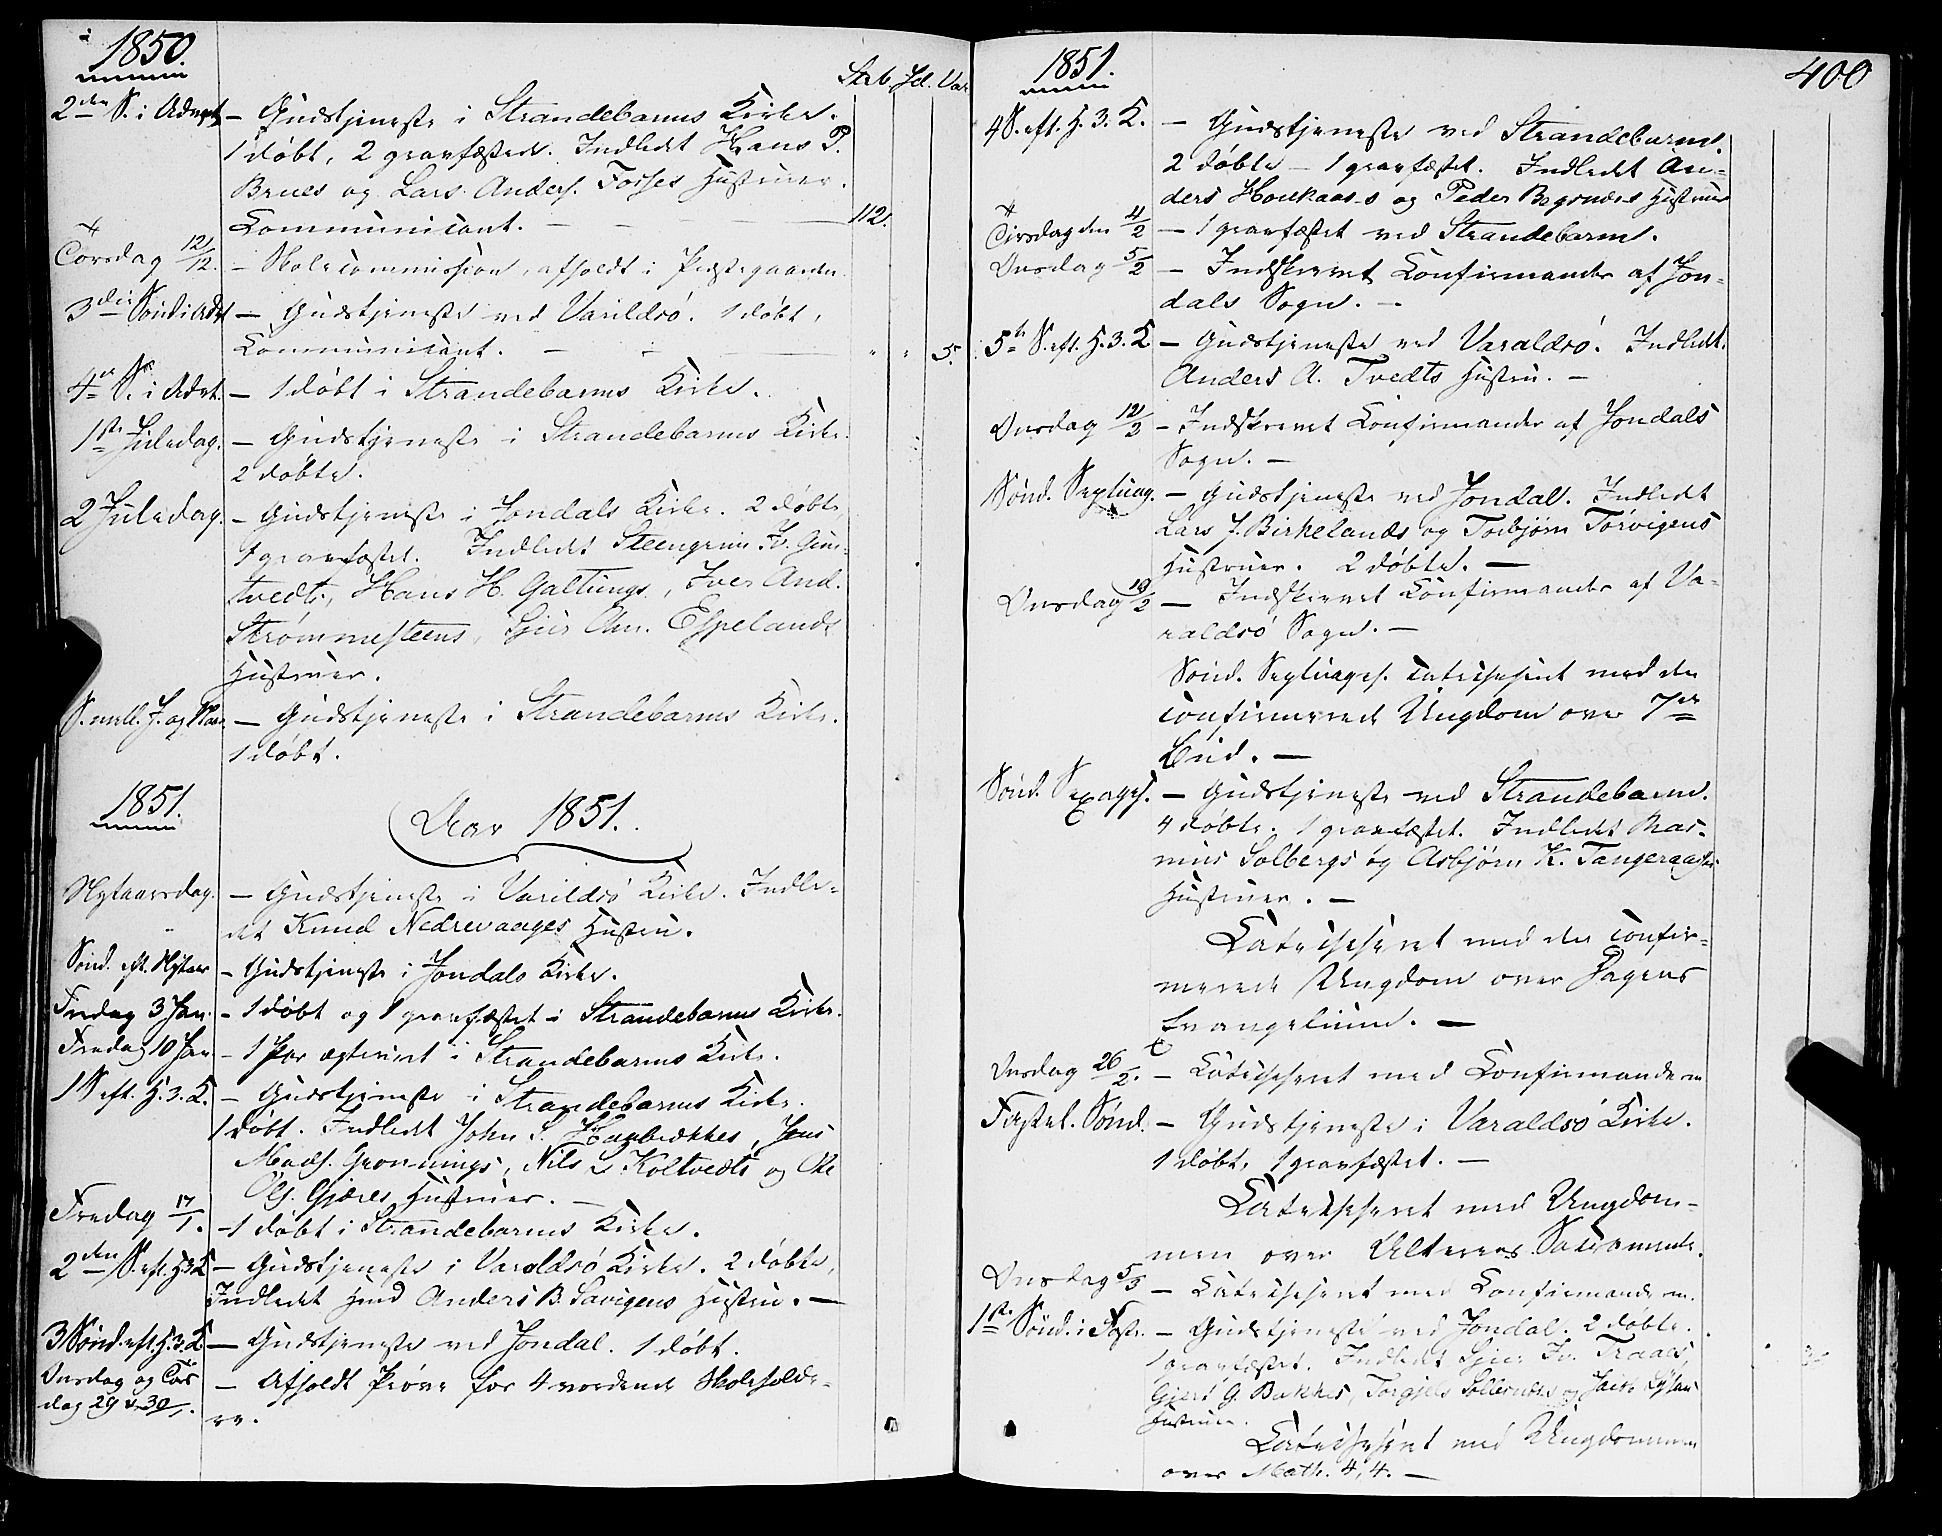 1850.
Strb. Jd. Var.
2den S. i Advent – Gudstjeneste i Strandebarms Kirke.
1 døbt, 2 gravfæstede. Indledet Hans P.
Brues og Lars Anders. Fosses Hustruer.
Communicant. – 112.
Torsdag 12/12. – Skolecommission, afholdt i Præstegaarden.
3die Sönd. i Advt – Gudstjeneste ved Varildsö. 1 døbt,
Communicant. – " " 5.
4de S. i Advt. – 1 døbt i Strandebarms Kirke.
1ste Juledag. – Gudstjeneste i Strandebarms Kirke.
2 døbte.
2 Juledag. – Gudstjeneste i Jondals Kirke. 2 døbte
1 gravfæstet. Indledet Steengrim Iv.
tvedts, Hans H. Galtungs, Iver And.
Strømmesteens, Sjur Chr. Espelands
Hustruer.
S. mell. J. og Nаar – Gudstjeneste i Strandebarms Kirke.
1 døbt.
1851.
Aar 1851.
Nytaarsdag. – Gudstjeneste i Varildsö Kirke. Indle-
det Knud Nedrevaages Hustru.
Sönd. eft. Nytaar – Gudstjeneste i Jondals Kirke.
Fredag 3 Jan. – 1 døbt og 1 gravfæstet i Strandebarms Kirke.
Fredag 10 Jan – 1 Par ægteviet i Strandebarms Kirke.
1 S eft. H. 3. K. – Gudstjeneste i Strandebarms Kirke.
1 døbt. Indledet John S. Haukækkes, Jens
Mads. Grønnings, Nils L. Koltvedts og Ole
Ols. Gjæres Hustruer. –
Fredag 17/1. – 1 døbt i Strandebarms Kirke.
2den S. eft. H3K – Gudstjeneste i Varaldsö Kirke. 2 døbte,
Indledet Hmd Anders B. Savigens Hustru. –
3 Sönd. eft. H. 3. K – Gudstjeneste ved Jondal. 1 døbt.
Onsdag og Tors – Afholdt Prøve for 4 vordende Skolehold-
dag 29 & 30/1. ere.
1851.
400
4 S. eft. H. 3. K. – Gudstjeneste ved Strandebarm.
2 døbte – 1 gravfæstet. Indledet An-
ders Haukaas-s og Peder Bøgrendes Hustruer
Tirsdag den 4/2 – 1 gravfæstet ved Strandebarm.
Onsdag 5/2 – Indskrevet Confirmander af Jon-
dals Sogn. –
5te S. eft. H. 3. K – Gudstjeneste ved Varaldsö. Indledt.
Anders A. Tvedts Hustru. –
Onsdag 12/2 – Indskrevet Confirmander af Jondals
Sogn. –
Sönd. Septuag. – Gudstjeneste ved Jondal. Indledet
Lars J. Birkelands og Torbjörn Törvigens
Hustruer. 2 døbte. –
Onsdag 19/2 – Indskrevet Confirmander af Va-
raldsö Sogn. –
Sönd. Septuages. Catechiseret med den
confirmerede Ungdom over 7de
Bud. –
Sönd. Sexages. – Gudstjeneste ved Strandebarm.
4 døbte. 1 gravfæstet. Indledet Ras-
mus Solbergs og Asbjörn K. Tangeraas's
Hustruer. –
Catechiseret med den confir-
merede Ungdom over Dagens
Evangelium. –
Onsdag 26/2. – Catechiseret med Confirmanderne
Fastel. Sönd. – Gudstjeneste i Varaldsö Kirke.
1 døbt, 1 gravfæstet. –
Catechiseret med Ungdom-
men over Alterens Sacramente.
Onsdag 5/3 – Catechiseret med Confirmanderne.
1ste Sönd. i Faste. – Gudstjeneste ved Jondal. 2 døbte.
1 gravfæstet. Indledet Sjur Iv. Traaes,
Gjert G. Bakkes, Torgjels Sollesnes og
Hustruer.
Catechiseret med Ungdommen
over Math. 4, 4. –